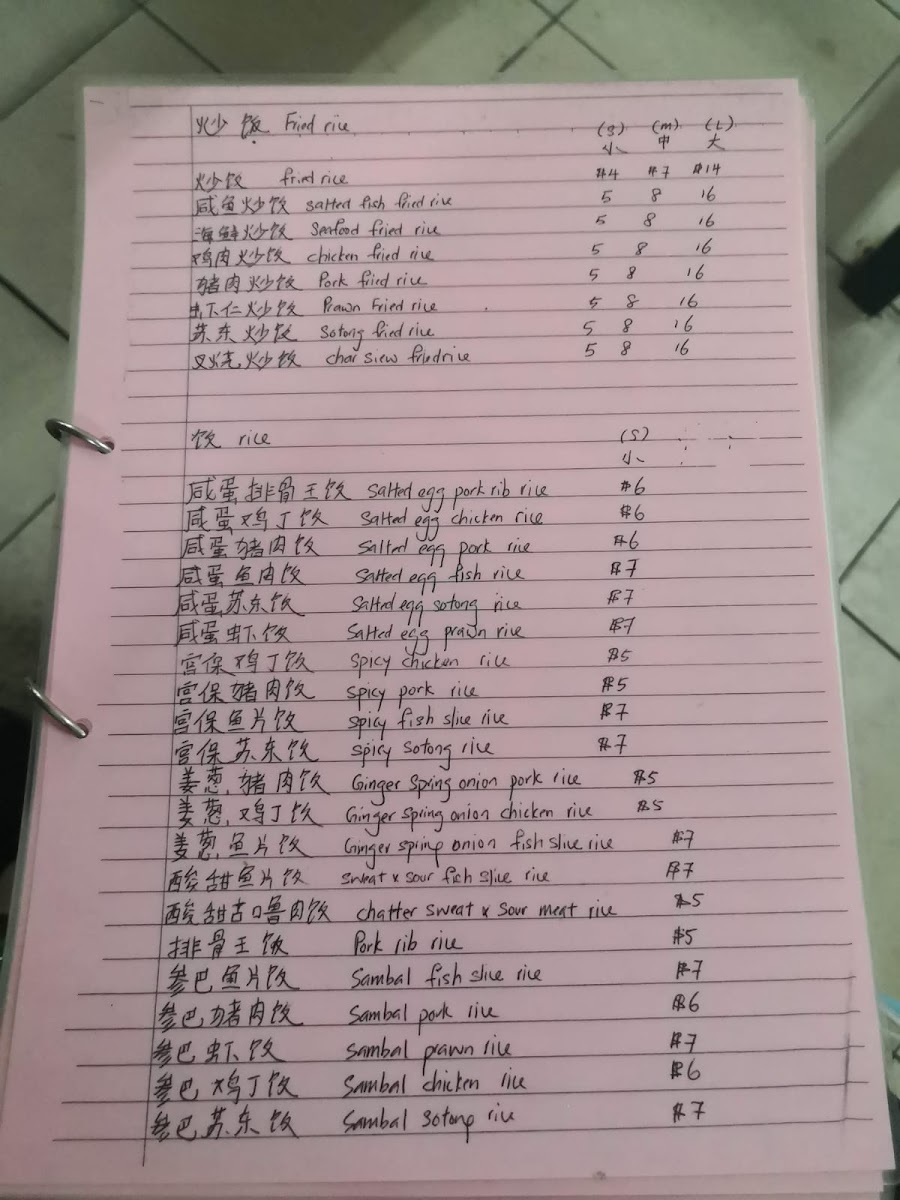 炒饭 Fried rice (S) (m) (L)
小 中 大
炒饭 fried rice $4 $7 $14
咸鱼炒饭 salted fish fried rice 5 8 16
海鲜炒饭 Seafood fried rice 5 8 16
鸡肉炒饭 chicken fried rice 5 8 16
猪肉炒饭 Pork fried rice 5 8 16
虾仁炒饭 Prawn Fried rice 5 8 16
苏东炒饭 Sotong fried rice 5 8 16
叉烧炒饭 char siew fried rice 5 8 16
饭 rice (S)
小
咸蛋排骨王饭 Salted egg pork rib rice $6
咸蛋鸡丁饭 Salted egg chicken rice $6
咸蛋猪肉饭 Salted egg pork rice $6
咸蛋鱼肉饭 Salted egg fish rice $7
咸蛋苏东饭 Salted egg sotong rice $7
咸蛋虾饭 Salted egg prawn rice $7
宫保鸡丁饭 Spicy chicken rice $5
宫保猪肉饭 Spicy pork rice $5
宫保鱼片饭 Spicy fish slice rice $7
宫保苏东饭 Spicy sotong rice $7
姜葱,猪肉饭 Ginger Spring onion pork rice $5
姜葱,鸡丁饭 Ginger Spring onion chicken rice $5
姜葱,鱼片饭 Ginger spring onion fish slice rice $7
酸甜鱼片饭 sweat x sour fish slice rice $7
酸甜古口鲁肉饭 chatter sweat x sour meat rice $5
排骨王饭 Pork rib rice $5
参巴鱼片饭 Sambal fish slice rice $7
参巴猪肉饭 Sambal pork rice $6
参巴虾饭 Sambal prawn rice $7
参巴鸡丁饭 Sambal chicken rice $6
参巴苏东饭 Sambal Sotong rice $7